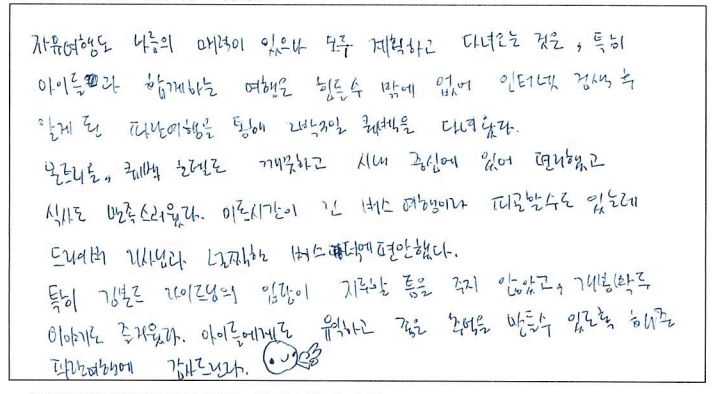 자유여행도 나름의 매력이 있으나 모두 계획하고 다녀오는 것은, 특히
아이들과 함께하는 여행은 힘들수 밖에 없어 인터넷 검색 후
알게 된 파란여행을 통해 2박3일 퀘벡을 다녀왔다.
몬트리올, 퀘벡 호텔도 깨끗하고 시내 중심에 있어 편리했고
식사도 만족스러웠다. 이동시간이 긴 버스 여행이라 피곤할수도 있는데
드라이버 기사님과 널찍한 버스 덕에 편안했다.
특히 가이드님의 입담이 지루할 틈을 주지 않았고,
이야기도 즐거웠다. 아이들에게도 유익하고 좋은 추억을 만들수 있도록 해준
파란여행에 감사드린다.